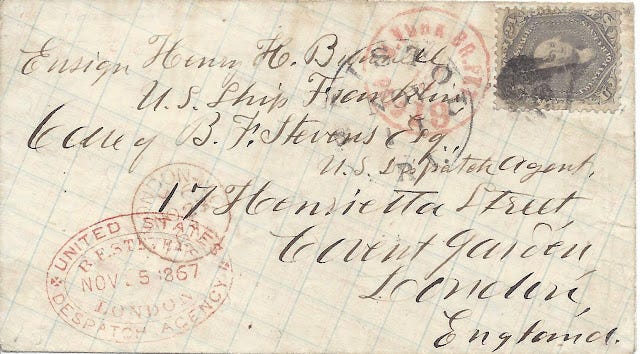 Ensign Henry H.
U.S. Ship Franklin
Care of B. F. Stevens Esq
U.S. Despatch Agent,
17 Henrietta Street
Covent Garden
London
England.
BR. PKT.
UNITED STATES
B. F. STEVENS
NOV. 5 1867
LONDON
DESPATCH AGENCY